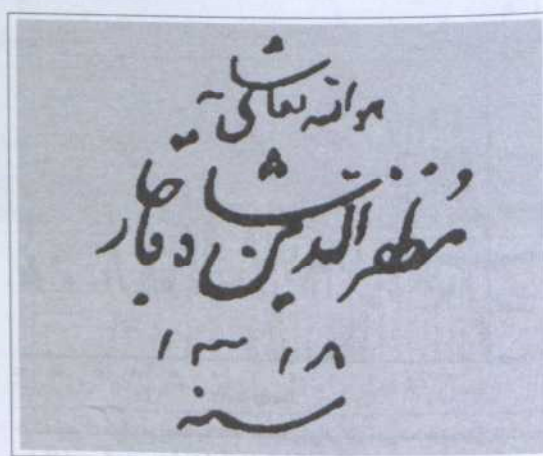 هوالله تعالی شانه
مظفرالدین شاه قاجار
۱۳۱۸
سنه